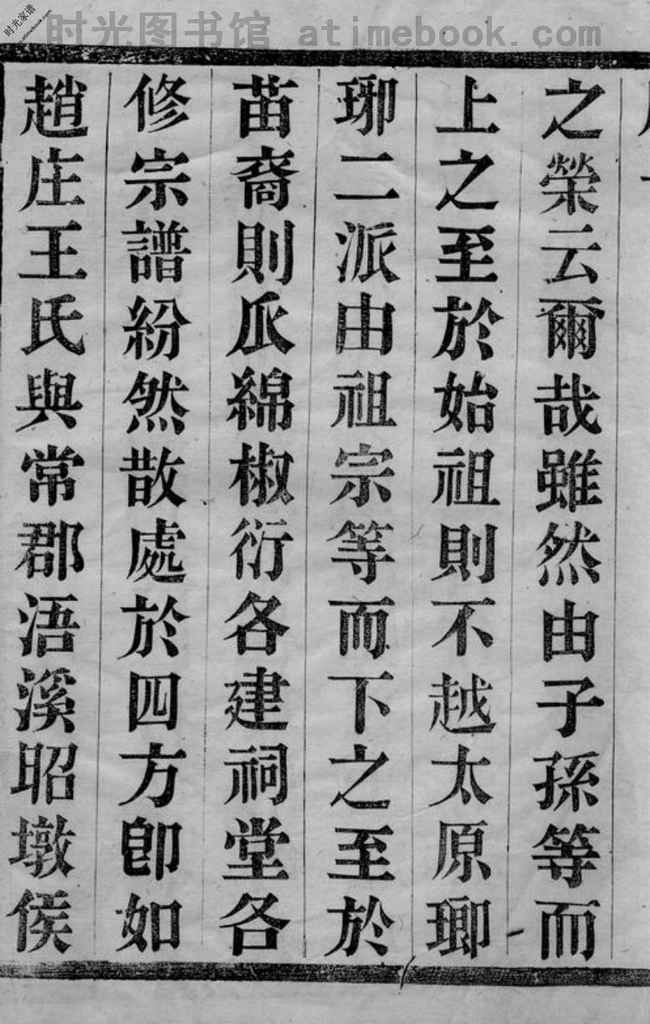 时光图书馆 atimebook.com
时光家谱
之榮云爾哉雖然由子孫等而
上之至於始祖則不越太原瑯
琊二派由祖宗等而下之至於
苗裔則瓜綿椒衍各建祠堂各
修宗譜紛然散處於四方卽如
趙庄王氏與常郡浯溪昭墩侯